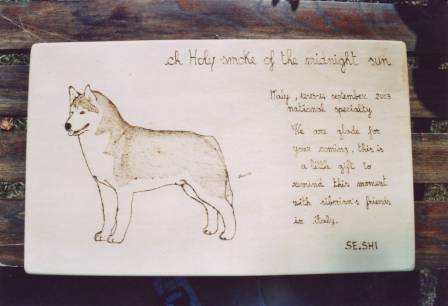 ch Holy smoke of the midnight sun
Italy, 12-13-14 september 2003
national specialty
We are glade for
your coming, this is
a little gift to
remind this moment
with siberian's friends
in Italy.
SE.SHI